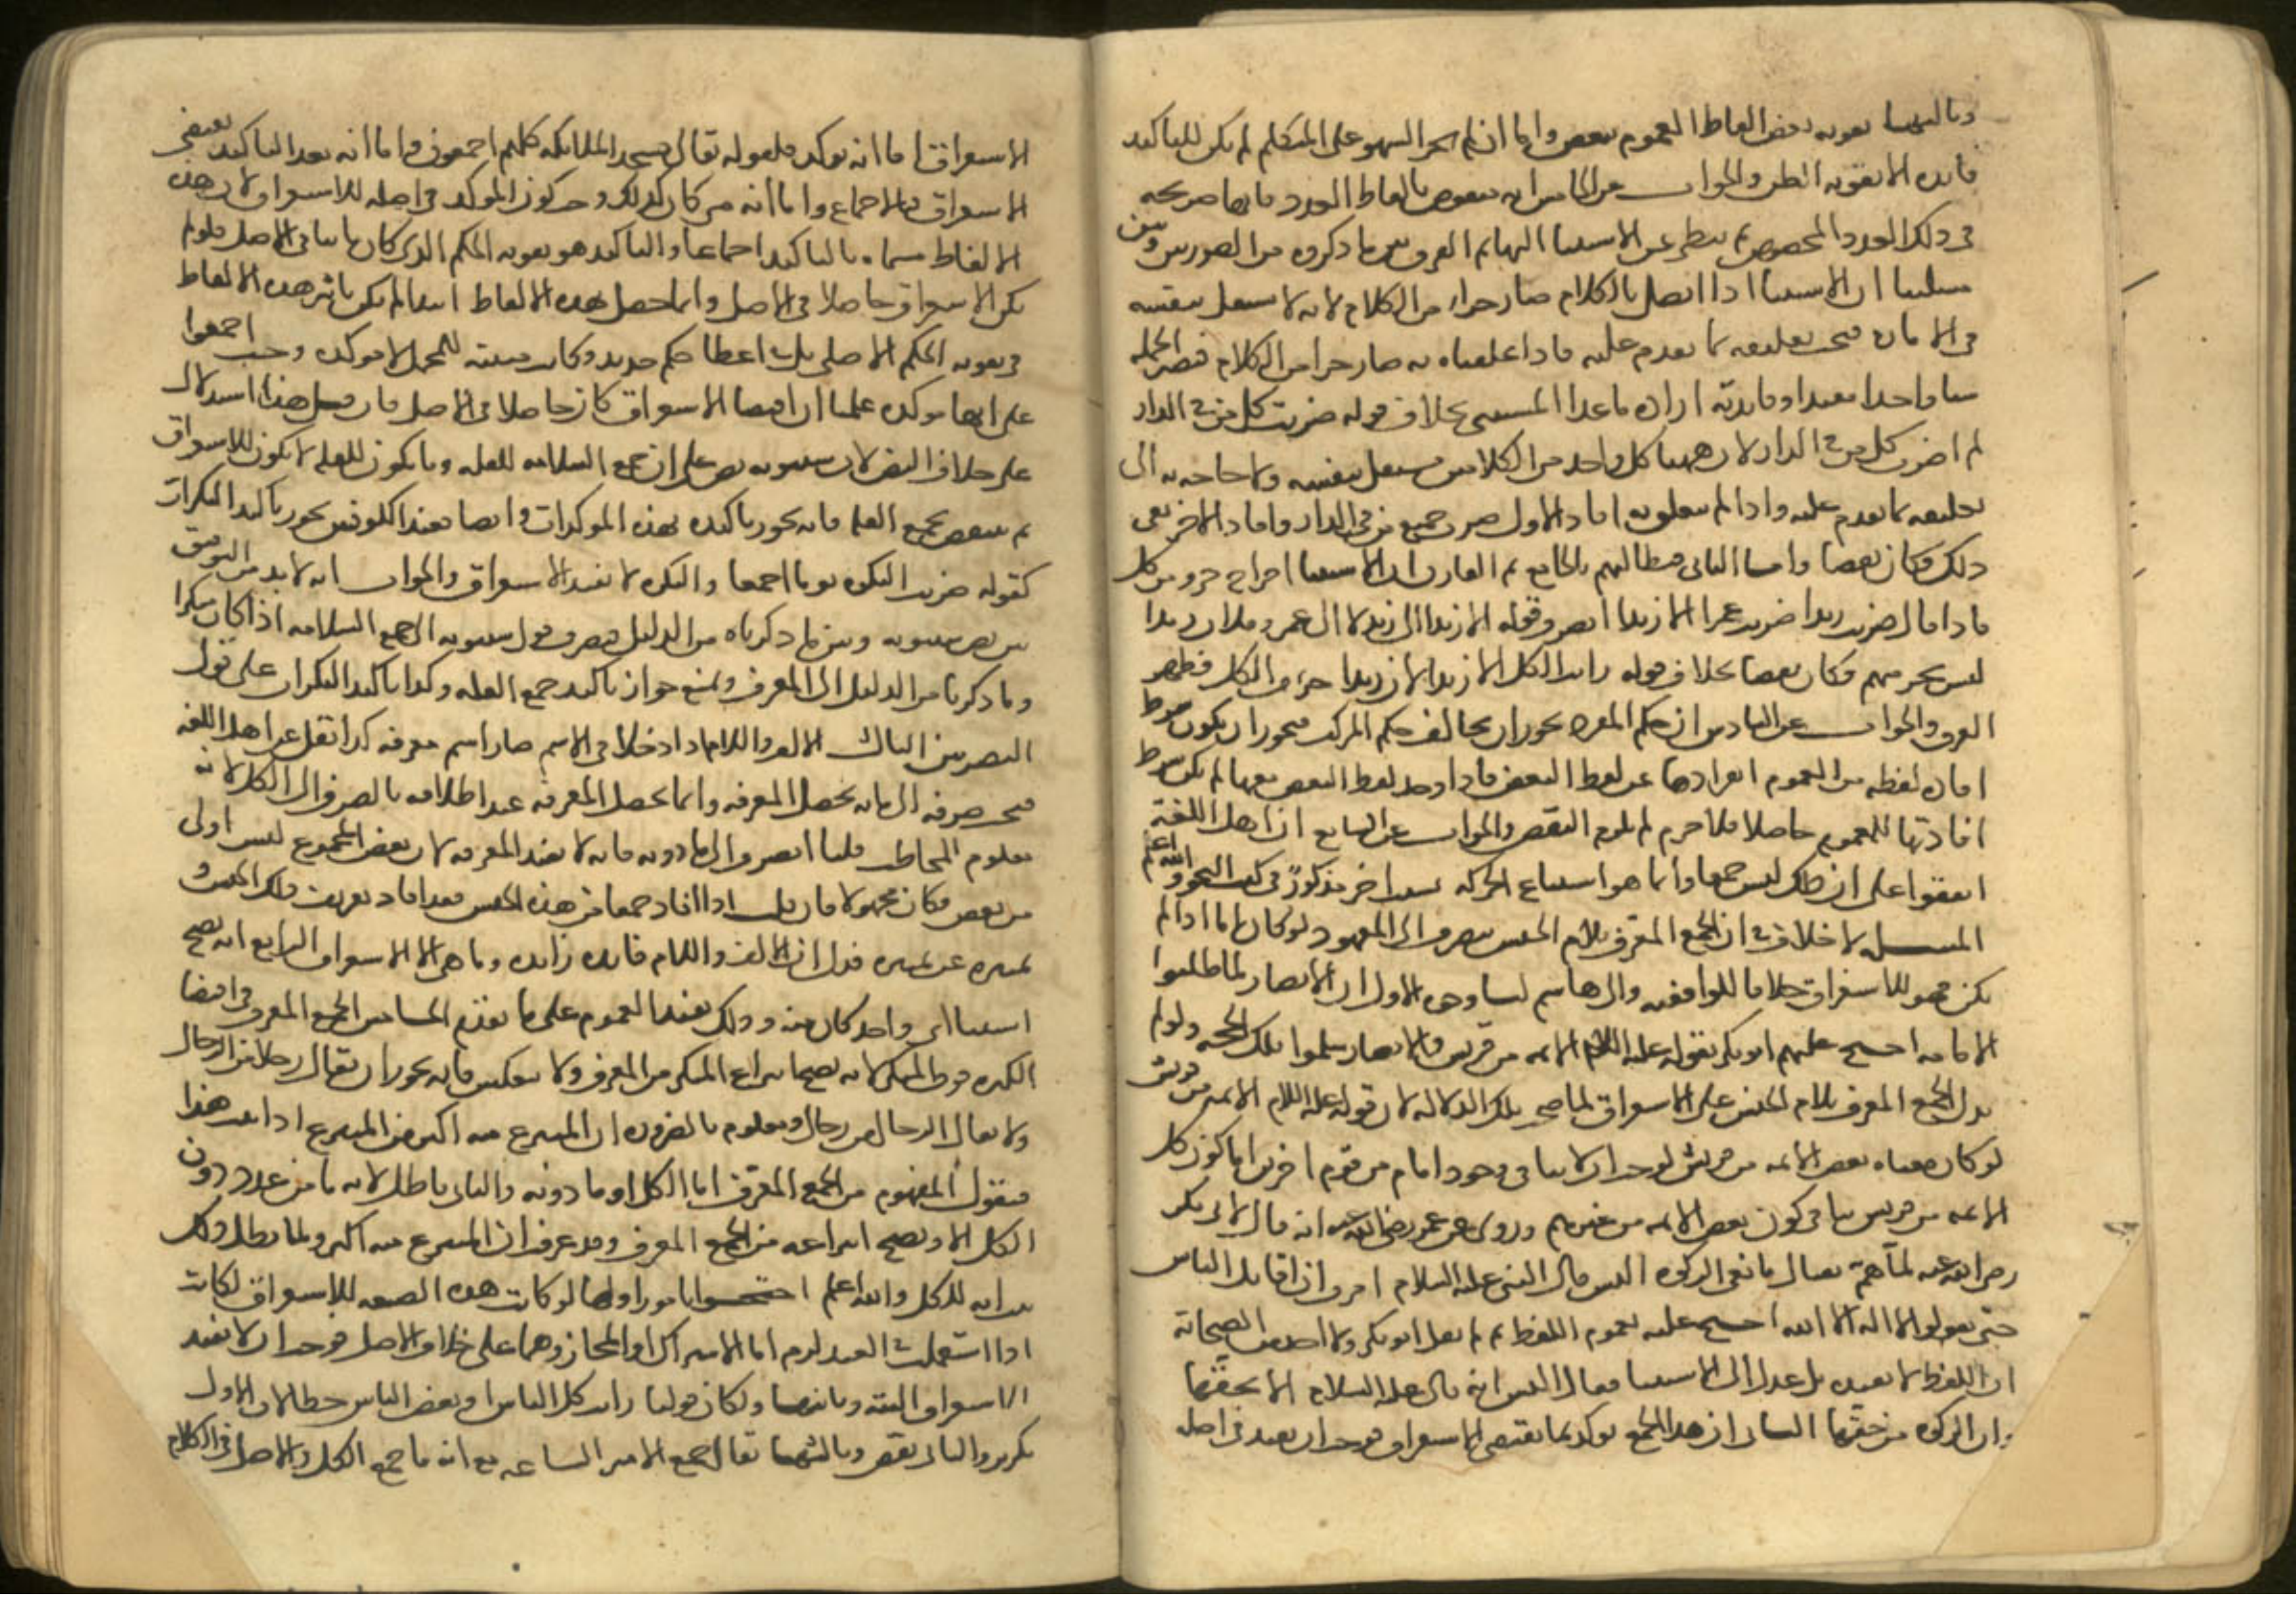 وثالثها تقوية بعض الفاظ العموم ببعض واما ان لم يجز السهو على المتكلم لم يكن للتاكيد
فايده الا تقويه الظن والجواب عن الخامس انه منقوض بالفاظ العدد فانها صريحه
في ذلك العدد المخصوص ثم يتطرق الاستثنا اليها ثم الفرق بين ما ذكروه من الصورتين وبين
مسلتنا ان الاستثنا اذا اتصل بالكلام صار جزءا من الكلام لانه لا يستقل بنفسه
في الافاده فيجب تعليقه بما تقدم عليه فاذا علقناه به صار جزا من الكلام فتصير الجمله
شيا واحدا مفيدا وفايدته اراده ما عدا المستثنى بخلاف قوله ضربت كل من في الدار
لم اضرب كل من في الدار لان ههنا كل واحد من الكلامين مستقل بنفسه ولا حاجه به الى
تعليقه بما تقدم عليه واذا لم يتعلق به افاد الاول ضرب جميع من في الدار وافاد الاخر نفي
ذلك فكان نقضا واما الثاني فنطالبهم بالجامع ثم الفارق ان الاستثنا اخراج جزو من كل
فاذا قال ضربت زيدا ضربت عمرا الا زيدا انصرف قوله الا زيدا الى زيد لا الى عمرو فلان زيدا
ليس بجزء منهم فكان نقضا بخلاف قوله رايت الكل الا زيدا لان زيدا جزء من الكل فظهر
الفرق والجواب عن السادس ان حكم المفرد يجوز ان يخالف حكم المركب فيجوز ان يكون شرط
افاده لفظه من للعموم انفرادها عن لفظ البعض فاذا وجد لفظ البعض معها لم يكن شرط
افادتها للعموم حاصلا فلا جرم لم يلزم النقض والجواب عن السابع ان اهل اللغة
اتفقوا على ان ذلك ليس جمعا وانما هو اشباع الحركه لسبب اخر مذكور في كتب النحو والله اعلم
المسله لا خلاف في ان الجمع المعرف بلام الجنس ينصرف الى المعهود لو كان اما اذا لم
يكن فهو للاستغراق خلافا للواقفيه وابي هاشم لنا وجوه الاول ان الانصار لما طلبوا
الامامه احتج عليهم ابو بكر بقوله عليه السلام الايمه من قريش والانصار سلموا تلك الحجه ولو لم
يدل الجمع المعرف بلام الجنس على الاستغراق لما صحت تلك الدلاله لان قوله عليه السلام الايمه من قريش
لو كان معناه بعض الايمه من قريش لوجب ان لا ينافي وجود امام من قوم اخرين اما كون كل
الايمه من قريش ينافي كون بعض الايمه من غيرهم وروي عن عمر رضي الله عنه انه قال لابي بكر
رضي الله عنه لما هم بقتال مانعي الزكوه اليس قال النبي عليه السلام امرت ان اقاتل الناس
حتى يقولوا لا اله الا الله احتج عليه بعموم اللفظ ثم لم يقل ابو بكر ولا احد من الصحابة
ان اللفظ لا يفيده بل عدل الى الاستثنا فقال اليس انه قال عليه السلام الا بحقها
وان الزكوه من حقها الثاني ان هذا الجمع يوكد بما يقتضي الاستغراق فوجب ان يفيد في اصله
الاستغراق اما انه يوكد فلقوله تعالى فسجد الملايكه كلهم اجمعون واما انه بعد التاكيد يقتضي
الاستغراق فبالاجماع واما انه متى كان كذلك وجب كون الموكد في اصله للاستغراق لان هذه
الالفاظ مسماه بالتاكيد اجماعا والتاكيد هو تقويه الحكم الذي كان ثابتا في الاصل فلو لم
يكن الاستغراق حاصلا في الاصل وانما حصل بهذه الالفاظ ابتدا لم يكن تاثير هذه الالفاظ
في تقويه الحكم الاصلي بل في اعطا حكم جديد وكانت مبينه للمجمل لا موكده وحيث اجمعوا
على انها موكده علمنا ان اقتضا الاستغراق كان حاصلا في الاصل فان قيل هذا استدلال
على خلاف النص لان سيبويه نص على ان جمع السلامه للقله وما يكون للقله لا يكون للاستغراق
ثم ينتقض بجمع القله فانه يجوز تاكيده بهذه الموكدات وايضا فعند الكوفيين يجوز تاكيد النكرات
كقوله ضربت البكره يوما اجمعا والنكره لا تفيد الاستغراق والجواب انه لا بد من التوفيق
بين نص سيبويه وبين ما ذكرناه من الدليل فيصرف قول سيبويه الى جمع السلامه اذا كان منكرا
وما ذكرنا من الدليل الى المعرف ونمنع جواز تاكيد جمع القله وكذا تاكيد النكرات على قول
البصريين الثالث الالف واللام اذا دخلا في الاسم صار اسم معرفه كذا نقل عن اهل اللغه
فيجب صرفه الى ما به تحصل المعرفه وانما تحصل المعرفه عند اطلاقه بالصرف الى الكل لانه
معلوم للمخاطب فاما انصرف الى ما دونه فانه لا يفيد المعرفه لان بعض المجموع ليس اولى
من بعض فكان مجهولا فان قلت اذا افاد جمعا من هذه الجنس فقد افاد تعريف ذلك الجنس و
تميزه عن غيره فدل ان الالف واللام فايده زايده وما هي الا الاستغراق الرابع انه يصح
استثنا اي واحد كان منه وذلك يفيد العموم على ما تقدم الخامس الجمع المعرف في اقتضا
الكثره فوق المنكر لانه يصح انتزاع المنكر من المعرف ولا ينعكس فانه يجوز ان يقال رجال من الرجال
ولا يقال الرجال من رجال ومعلوم بالضروره ان المنتزع منه اكثر من المنتزع اذا ثبت هذا
فنقول المفهوم من الجمع المعرف اما الكل او ما دونه والثاني باطل لانه ما من عدد دون
الكل الا ويصح انتزاعه من الجمع المعرف وقد عرفت ان المنتزع منه اكثر ولما بطل ذلك
ثبت انه للكل والله اعلم احتجوا بامور اولها لو كانت هذه الصيغه للاستغراق لكانت
اذا استعملت في العهد لزم اما الاشتراك او المجاز وهما على خلاف الاصل فوجب ان لا تفيد
الاستغراق البته وثانيها ولكان قولنا رايت كل الناس او بعض الناس خطا لان الاول
تكرير والثاني نقض وثالثها يقال جمع الامير الصاغه مع انه ما جمع الكل والاصل في الكلام